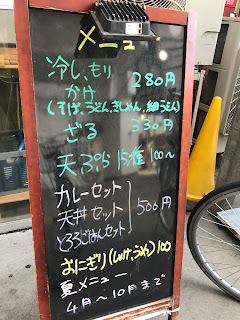 メニュー
冷し、もり 280円
かけ
(そば、うどん、きしめん、細うどん)
ざる 330円
天ぷら 15種 100〜
カレーセット
天丼セット 500円
とろろごはんセット
おにぎり(しゃけ、うめ)100
夏メニュー
4月〜10月まで